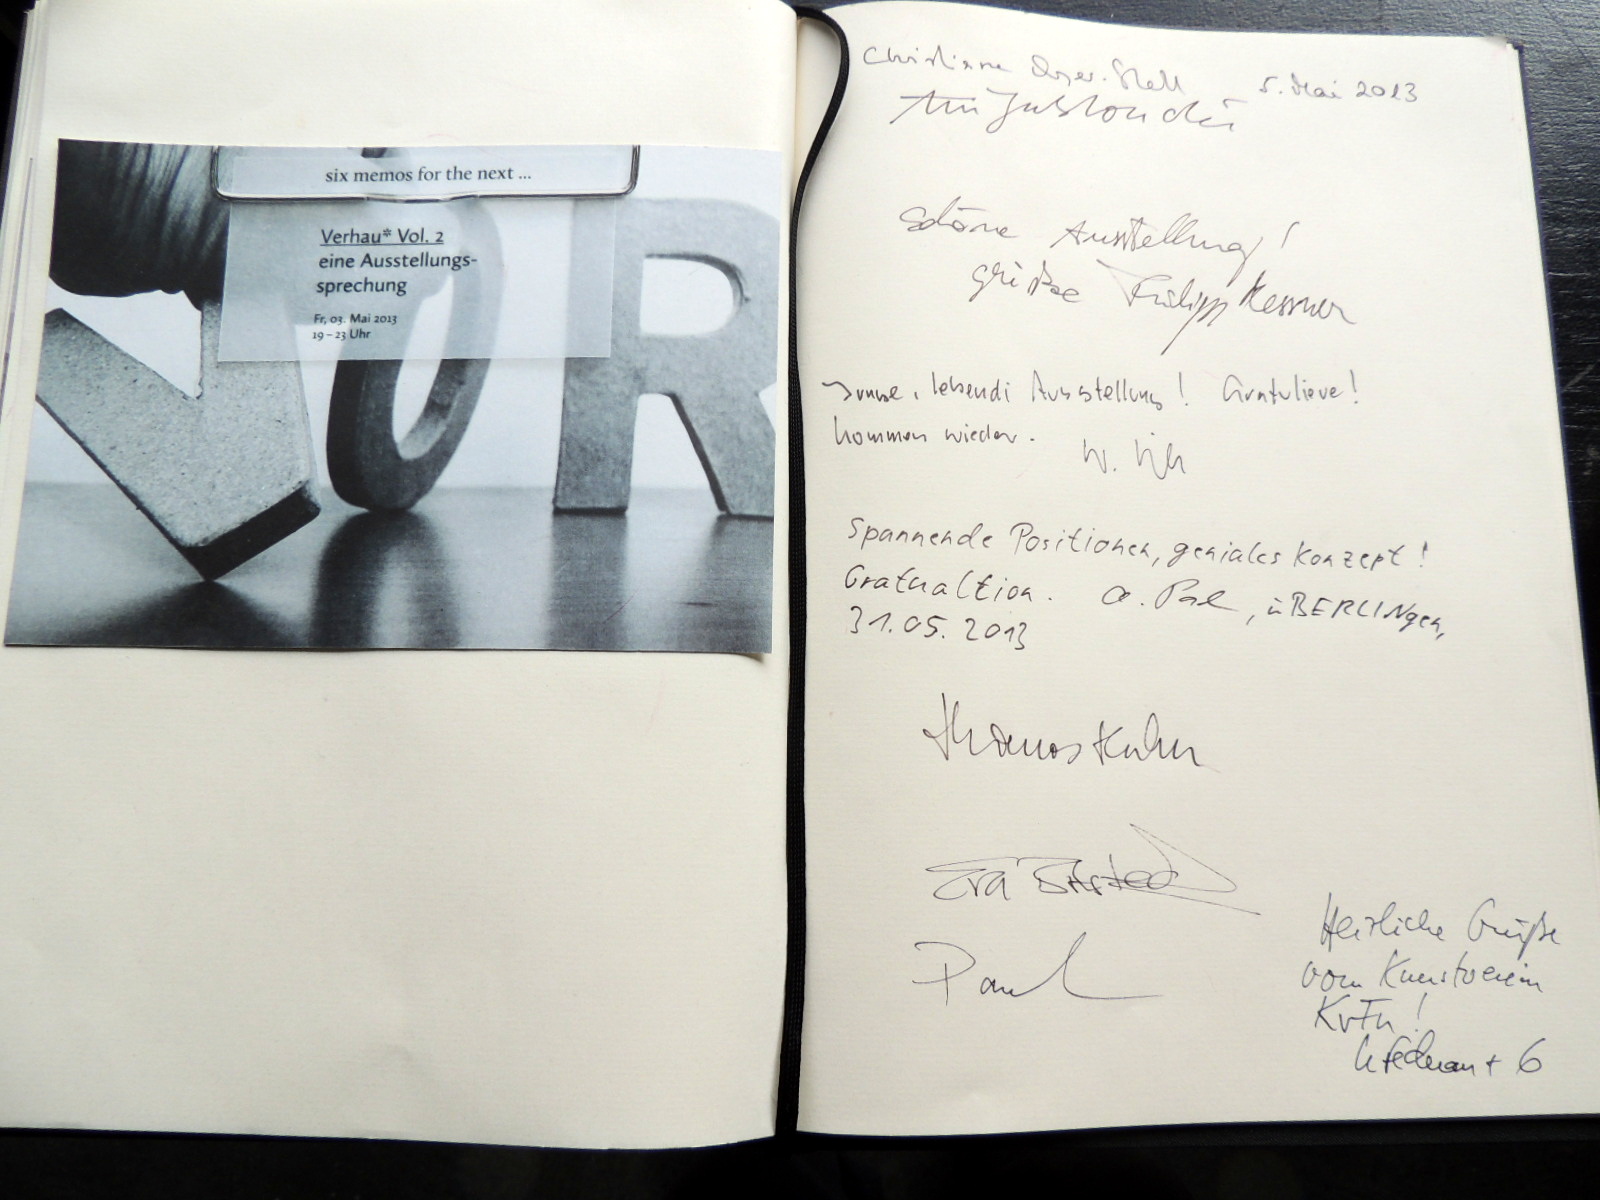 six memos for the next ...
Verhau* Vol. 2
eine Ausstellungs-
sprechung
Fr, 03. Mai 2013
19 – 23 Uhr
VOR
Christiane 5. Mai 2013
Schöne Ausstellung!
Grüße Philipp Messner
lebendi Ausstellung! Gratuliere!
kommen wieder.
W.
Spannende Positionen, geniales Konzept!
Gratualtion. üBERLINgen,
31.05.2013
Thomas Kuhn
Eva
Paul
Herzliche Grüße
vom Kunstverein
KVFN!
+ 6